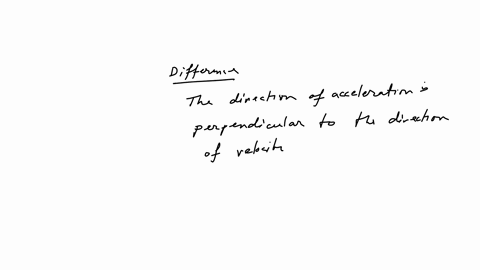 Difference
The direction of acceleration is
perpendicular to the direction
of velocity